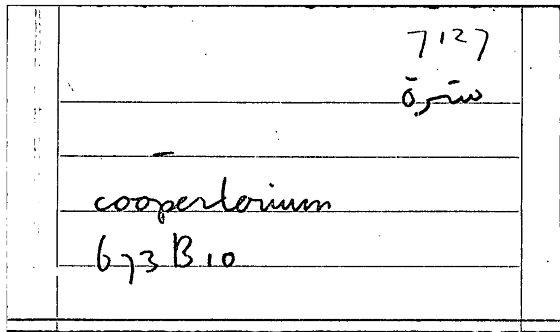 7127
سترة
coopertorium
673 B 10